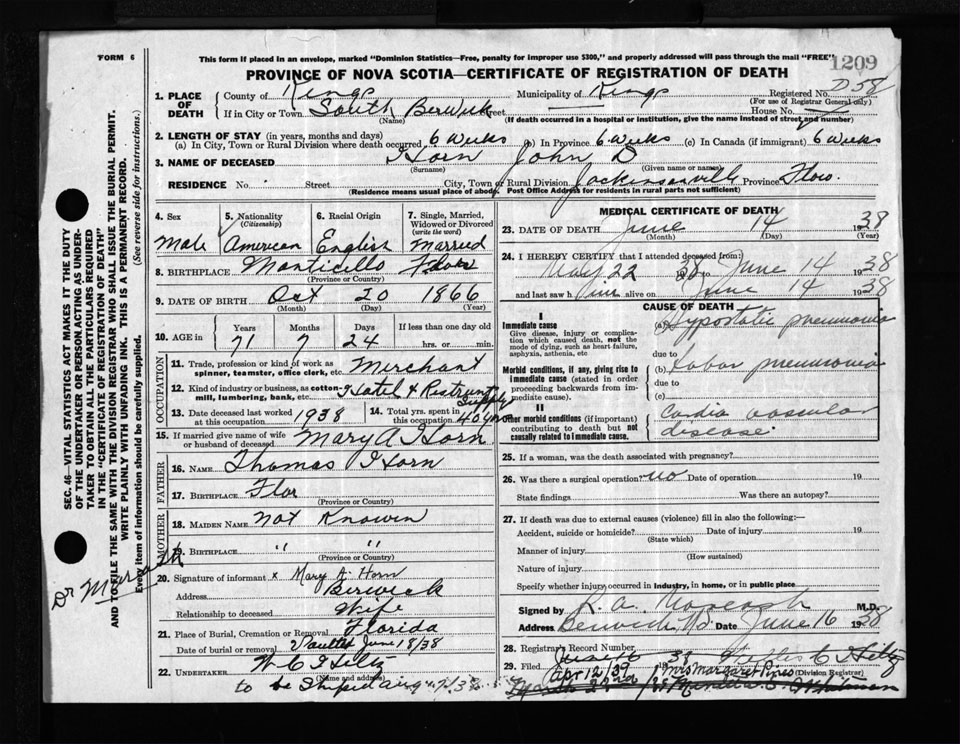 FORM 6
This form if placed in an envelope, marked "Dominion Statistics—Free, penalty for improper use $300," and properly addressed will pass through the mail "FREE"
1209
PROVINCE OF NOVA SCOTIA—CERTIFICATE OF REGISTRATION OF DEATH
1. PLACE OF DEATH
County of Kings Municipality of Kings Registered No. D 58
(For use of Registrar General only)
If in City or Town South Berwick Street House No.
(Name) (If death occurred in a hospital or institution, give the name instead of street and number)
2. LENGTH OF STAY (in years, months and days)
(a) In City, Town or Rural Division where death occurred 6 Weeks (b) In Province 6 Weeks (c) In Canada (if immigrant) 6 Weeks
3. NAME OF DECEASED Horn John D
(Surname) (Given name or names)
RESIDENCE No. Street City, Town or Rural Division Jacksonville Province Flor.
(Residence means usual place of abode. Post Office Address for residents in rural parts not sufficient)
4. Sex Male
5. Nationality (Citizenship) American
6. Racial Origin English
7. Single, Married, Widowed or Divorced (write the word) Married
8. BIRTHPLACE Monticello Flor
(Province or Country)
9. DATE OF BIRTH Oct 20 1866
(Month) (Day) (Year)
10. AGE in Years Months Days If less than one day old
71 7 24 hrs. or min.
OCCUPATION
11. Trade, profession or kind of work as spinner, teamster, office clerk, etc. Merchant
12. Kind of industry or business, as cotton-mill, lumbering, bank, etc. Hotel & Restrunt Supply
13. Date deceased last worked at this occupation 1938
14. Total yrs. spent in this occupation 40 years
15. If married give name of wife or husband of deceased Mary A Horn
FATHER
16. NAME Thomas Horn
17. BIRTHPLACE Flor
(Province or Country)
MOTHER
18. MAIDEN NAME Not Known
19. BIRTHPLACE " "
(Province or Country)
20. Signature of informant x Mary A. Horn
Address Berwick
Relationship to deceased Wife
21. Place of Burial, Cremation or Removal Florida
Date of burial or removal Vaulted June 18/38
22. UNDERTAKER W C Hiltz
(Name and address)
to be Shiped
MEDICAL CERTIFICATE OF DEATH
23. DATE OF DEATH June 14 1938
(Month) (Day) (Year)
24. I HEREBY CERTIFY that I attended deceased from:
May 22 1938 to June 14 1938
and last saw him alive on June 14 1938
CAUSE OF DEATH
I
Immediate cause
Give disease, injury or complication which caused death, not the mode of dying, such as heart failure, asphyxia, asthenia, etc
(a) Hypostatic pneumonia
due to
Morbid conditions, if any, giving rise to immediate cause (stated in order proceeding backwards from immediate cause).
(b) Lobar pneumonia
due to
(c)
II
Other morbid conditions (if important) contributing to death but not causally related to immediate cause.
Cardio vascular disease
25. If a woman, was the death associated with pregnancy?
26. Was there a surgical operation? no Date of operation 19
State findings Was there an autopsy?
27. If death was due to external causes (violence) fill in also the following:—
Accident, suicide or homicide? Date of injury 19
(State which)
Manner of injury
(How sustained)
Nature of injury
Specify whether injury occurred in industry, in home, or in public place
Signed by M.D.
Address Berwick N.S. Date June 16 1938
28. Registrar's Record Number
29. Filed June 16 38 C Hiltz
Apr 12/39 Mrs Margaret Pines
(Division Registrar)
SEC. 46—VITAL STATISTICS ACT MAKES IT THE DUTY OF THE UNDERTAKER OR PERSON ACTING AS UNDERTAKER TO OBTAIN ALL THE PARTICULARS REQUIRED IN THE "CERTIFICATE OF REGISTRATION OF DEATH" AND TO FILE THE SAME WITH THE DIVISION REGISTRAR WHO SHALL ISSUE THE BURIAL PERMIT.
WRITE PLAINLY WITH UNFADING INK. THIS IS A PERMANENT RECORD.
Every item of Information should be carefully supplied. (See reverse side for instructions.)
Dr